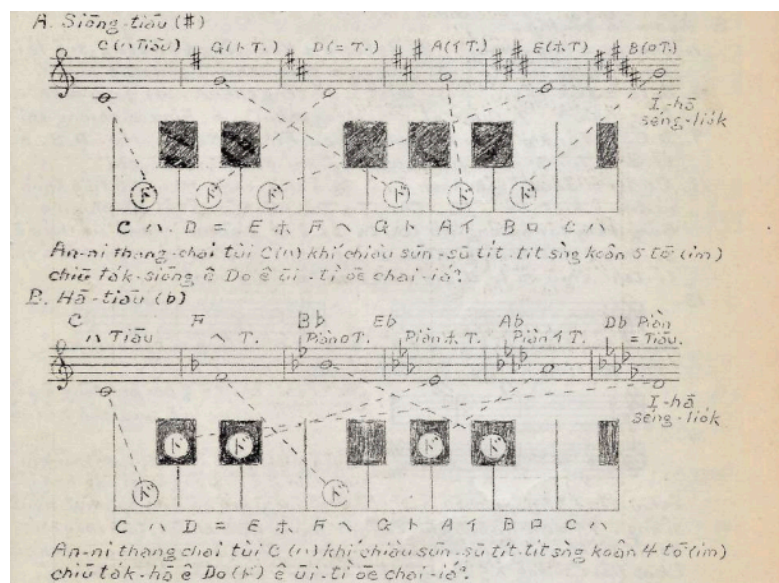 A. Siōng-tiāu (#)
C (ハ Tiāu) G (ト T.) D (ニ T.) A (イ T.) E (ホ T) B (ロ T.)
Í-hā
séng-liòk
ド ド ド ド ド ド
C ハ D ニ E ホ F ヘ G ト A イ B ロ C ハ
An-ni thang chai tùi C (ハ) khí chiàu sūn-sū tit-tit sǹg koân 5 tō͘ (im)
chiū ták-siōng ê Do ê ūi-tì ōe chai-iáⁿ.
B. Hā-tiāu (b)
C F B♭ E♭ A♭ D♭ Piàn
ハ Tiāu ヘ T. Piàn ロ T. Piàn ホ T. Piàn イ T. ニ Tiāu.
Í-hā
séng-liòk
ド ド ド ド
ド ド
C ハ D ニ E ホ F ヘ G ト A イ B ロ C ハ
An-ni thang chai tùi C (ハ) khí chiàu sūn-sū tit-tit sǹg koân 4 tō͘ (im)
chiū ták-hā ê Do (ド) ê ūi-tì ōe chai-iáⁿ.